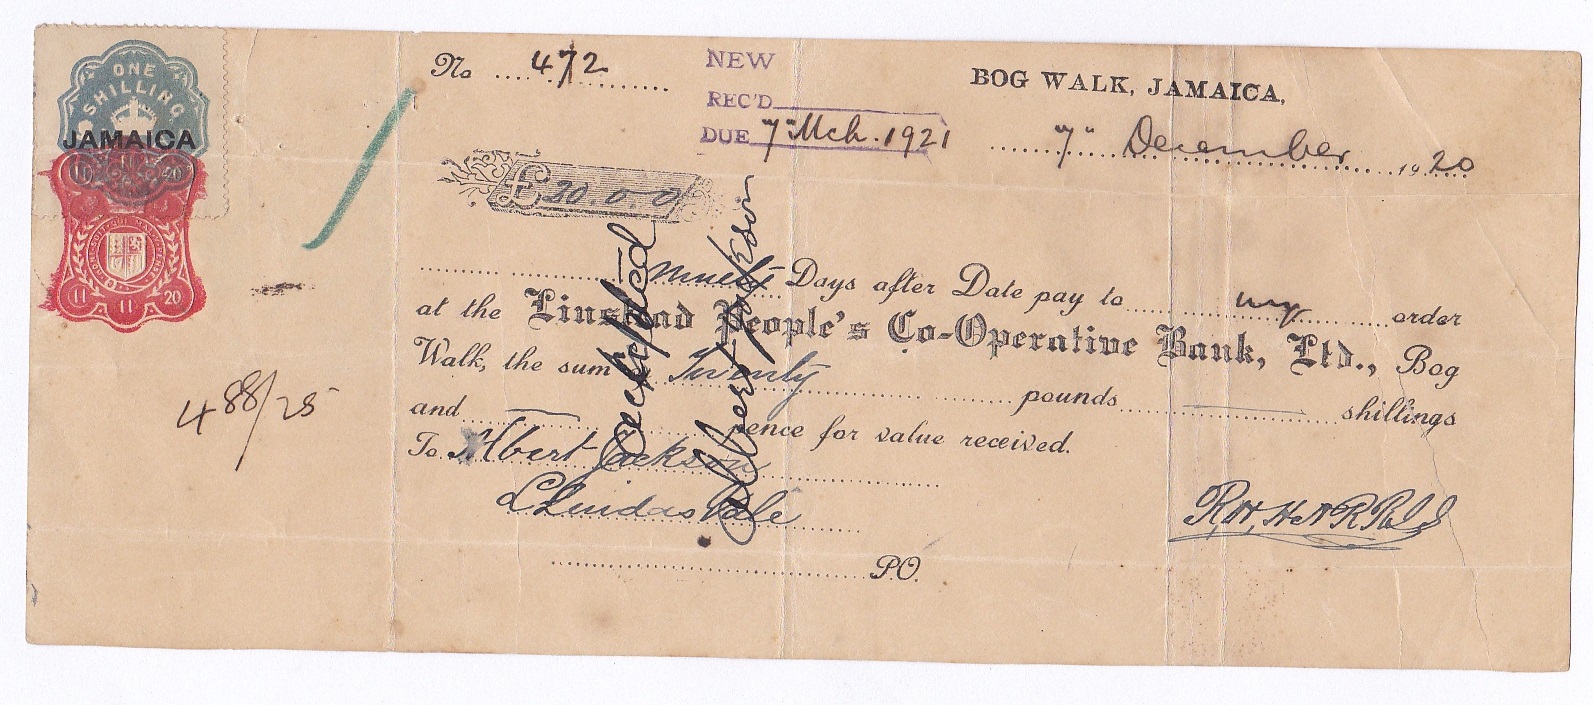 ONE
SHILLING
JAMAICA
11 20
11 11 20
No 472
NEW
REC'D
DUE 7" Mch. 1921
BOG WALK, JAMAICA,
7" December 1920
£ 20.0.0
ninety Days after Date pay to my order
at the Linstead People's Co-Operative Bank, Ltd., Bog
Walk, the sum Twenty pounds shillings
and pence for value received.
To Albert Jackson
Lluidas Vale
P.O.
Accepted
Albert Jackson
488/25